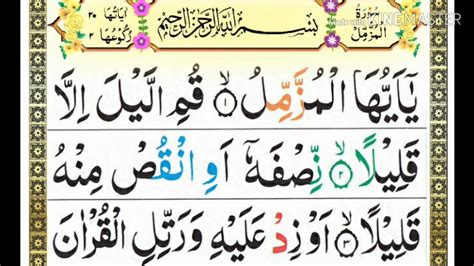 اٰیَاتُهَا ٢٠
رُكُوْعُهَا ٢
بِسْمِ اللّٰهِ الرَّحْمٰنِ الرَّحِيْمِ
سُوْرَةُ
الْمُزَّمِّلِ
Made with KINEMASTER
يٰۤاَيُّهَا الْمُزَّمِّلُ ۙ﴿١﴾ قُمِ الَّيْلَ اِلَّا
قَلِيْلًا ۙ﴿٢﴾ نِّصْفَهٗۤ اَوِ انْقُصْ مِنْهُ
قَلِيْلًا ۙ﴿٣﴾ اَوْ زِدْ عَلَيْهِ وَرَتِّلِ الْقُرْاٰنَ